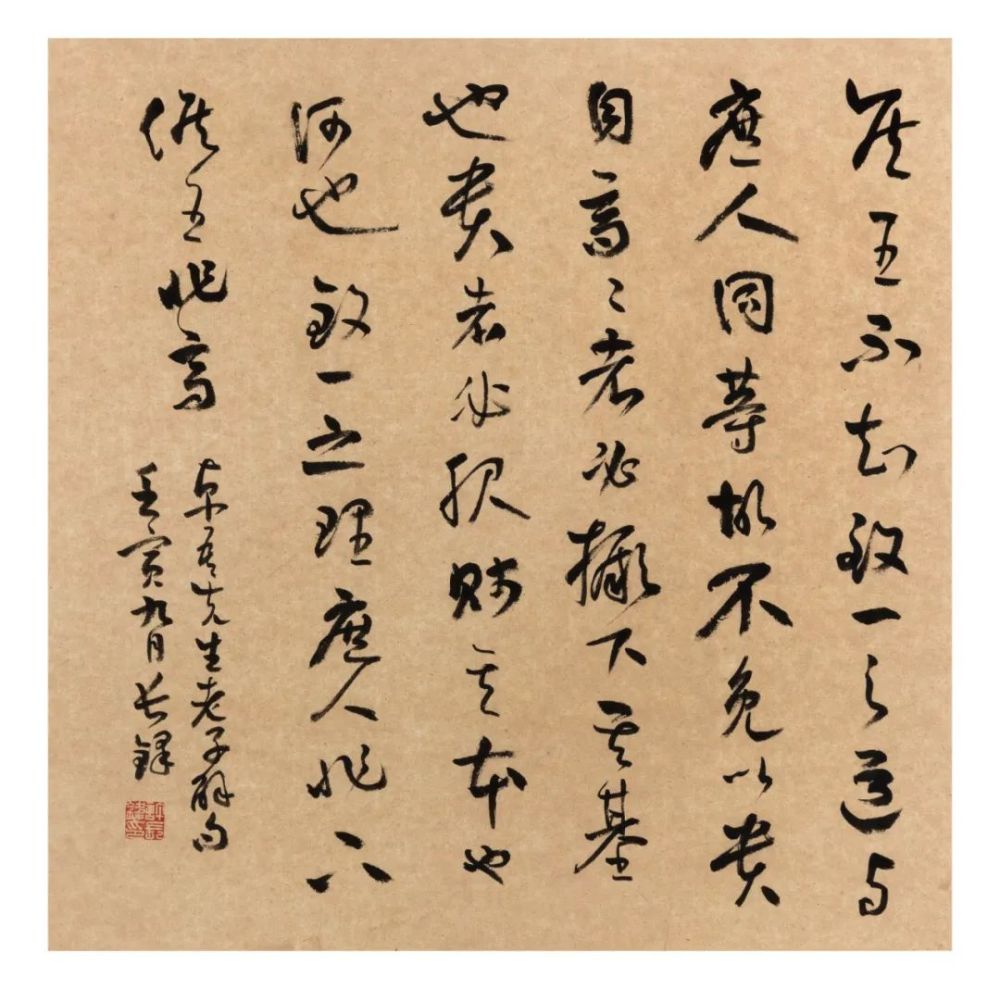 侯王不知致一之道与
庶人同等故不免以贵
自高〻者必據下其基
也贵者必贱其本也
何也致一之理庶人非下
侯王非高
卓吾先生老子解句
壬寅九月长铎